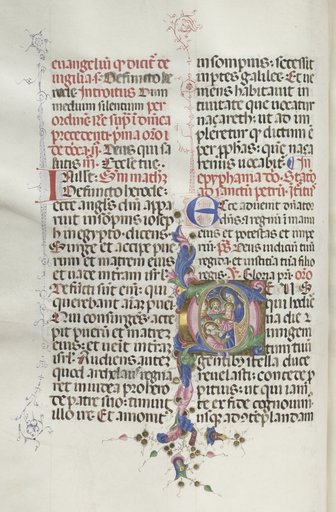 euangelium qd dicit de
uigilia s. Defuncto he
rode Introitus Dum
medium silentium per
ordinem
precedenti
Deus qui sa
lutis Eccle tue.
In illo t. Sm matheum
Defuncto herode:
ecce angls dni appa
ruit in sompnis iosep
in egypto dicens.
Surge et accipe pue
rum et matrem eius
et uade in terram isrl.
Defuncti sunt eni qui
querebant aiam pueri
Qui consurgens acce
pit puerum et matrem
eius: et uenit in terram
isrl. Audiens autem
quod archelaus regna
ret in iudea pro herode
patre suo: timuit
illo ire. Et amonit
in sompnis: secessit
in partes galilee. Et ue
niens habitauit in
ciuitate que uocatur
naçareth: ut ad im
pleretur qd dictum e
per pphas: qm naça
renus uocabit. In
epyphania dni. Statio
ad sanctum petrum. Introitus
Ecce aduenit dnator
dns: et regnum in manu
eius et potestas et impe
rium. ps. Deus iudicium tuum
regi da: et iustitia tua filio
regis. Gloria pri. oro
DEUS
qui hodier
na die u
nigeni
tum tuum
gentibus stella duce
reuelasti: concede p
pitius: ut qui iam
te ex fide cognouim
usque ad contemplandam